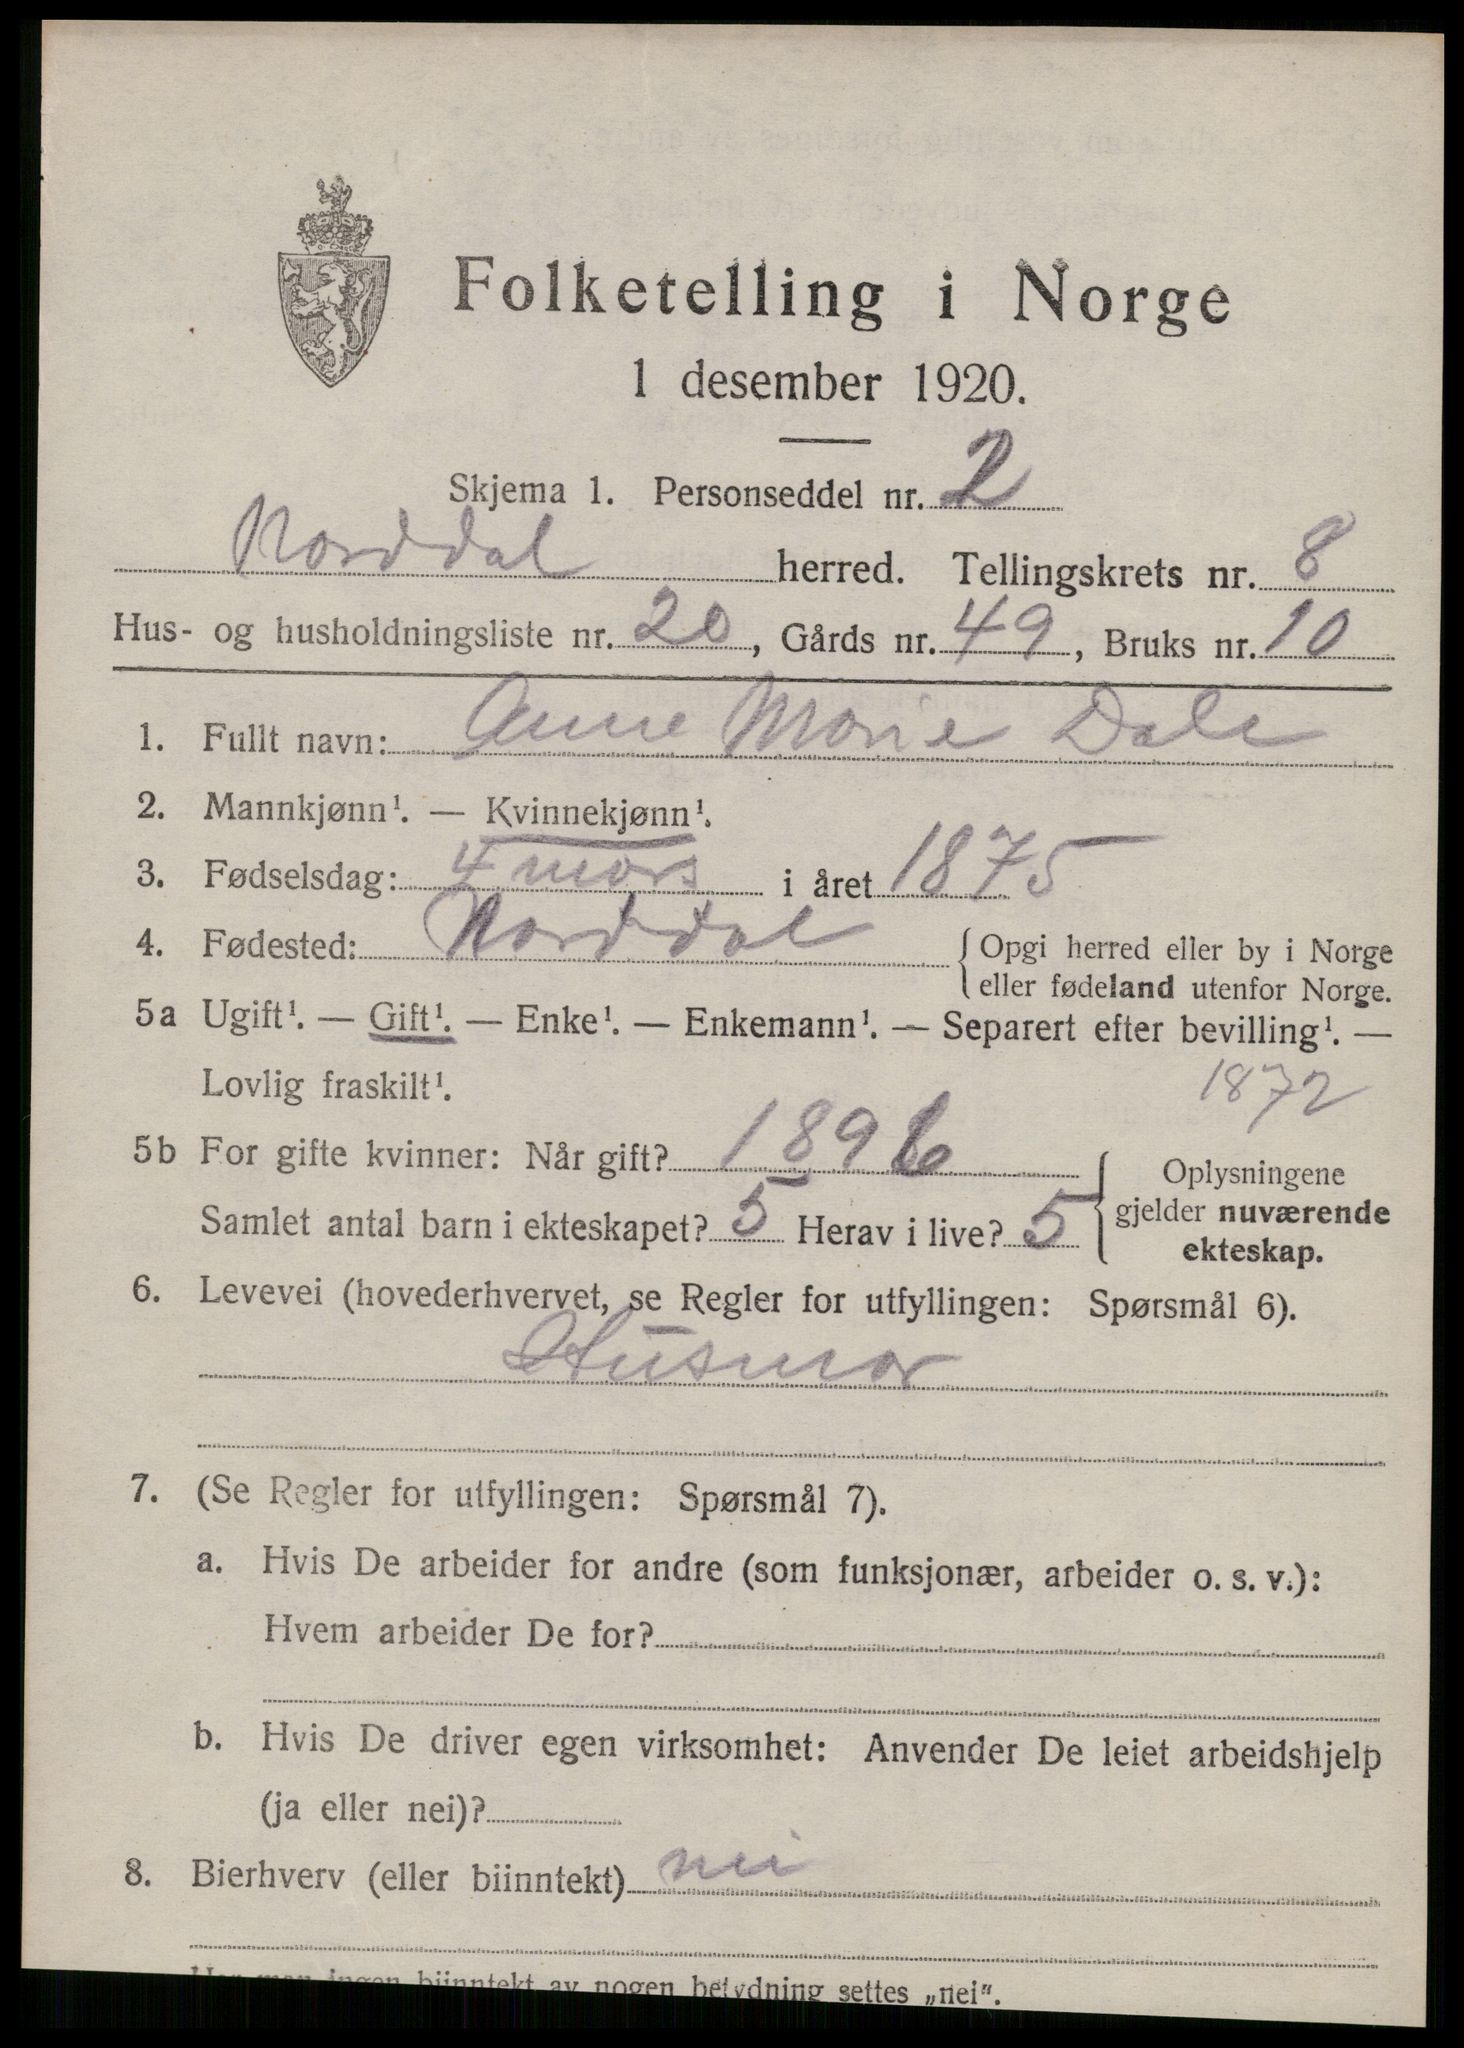 Folketelling i Norge
1 desember 1920.
Skjema 1. Personseddel nr. 2
Norddal herred. Tellingskrets nr. 8
Hus- og husholdningsliste nr. 20, Gårds nr. 49, Bruks nr. 10
1. Fullt navn: Anne Marie Dale
2. Mannkjønn¹. — Kvinnekjønn¹.
3. Fødselsdag: 4 mars i året 1875
4. Fødested: Norddal { Opgi herred eller by i Norge
eller fødeland utenfor Norge.
5a Ugift¹. — Gift¹. — Enke¹. — Enkemann¹. — Separert efter bevilling¹. —
Lovlig fraskilt¹. 1872
5b For gifte kvinner: Når gift? 1896
Samlet antal barn i ekteskapet? 5 Herav i live? 5
{ Oplysningene
gjelder nuværende
ekteskap.
6. Levevei (hovederhvervet, se Regler for utfyllingen: Spørsmål 6).
Husmor
7. (Se Regler for utfyllingen: Spørsmål 7).
a. Hvis De arbeider for andre (som funksjonær, arbeider o. s. v.):
Hvem arbeider De for?
b. Hvis De driver egen virksomhet: Anvender De leiet arbeidshjelp
(ja eller nei)?
8. Bierhverv (eller biinntekt) nei
Har man ingen biinntekt av nogen betydning settes „nei“.